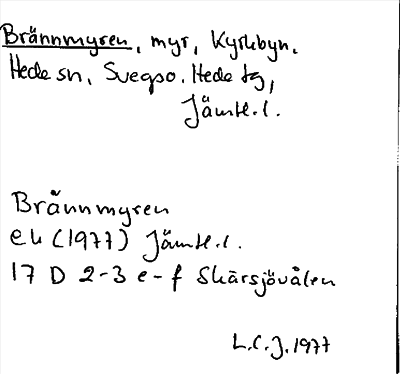 Brännmyren, myr, Kyrkbyn.
Hede sn, Svegso. Hede tg,
Jämtl. l.
Brännmyren
ek (1977) Jämtl. l.
17 D 2-3 e-f Skärsjövålen
L.C.J. 1977